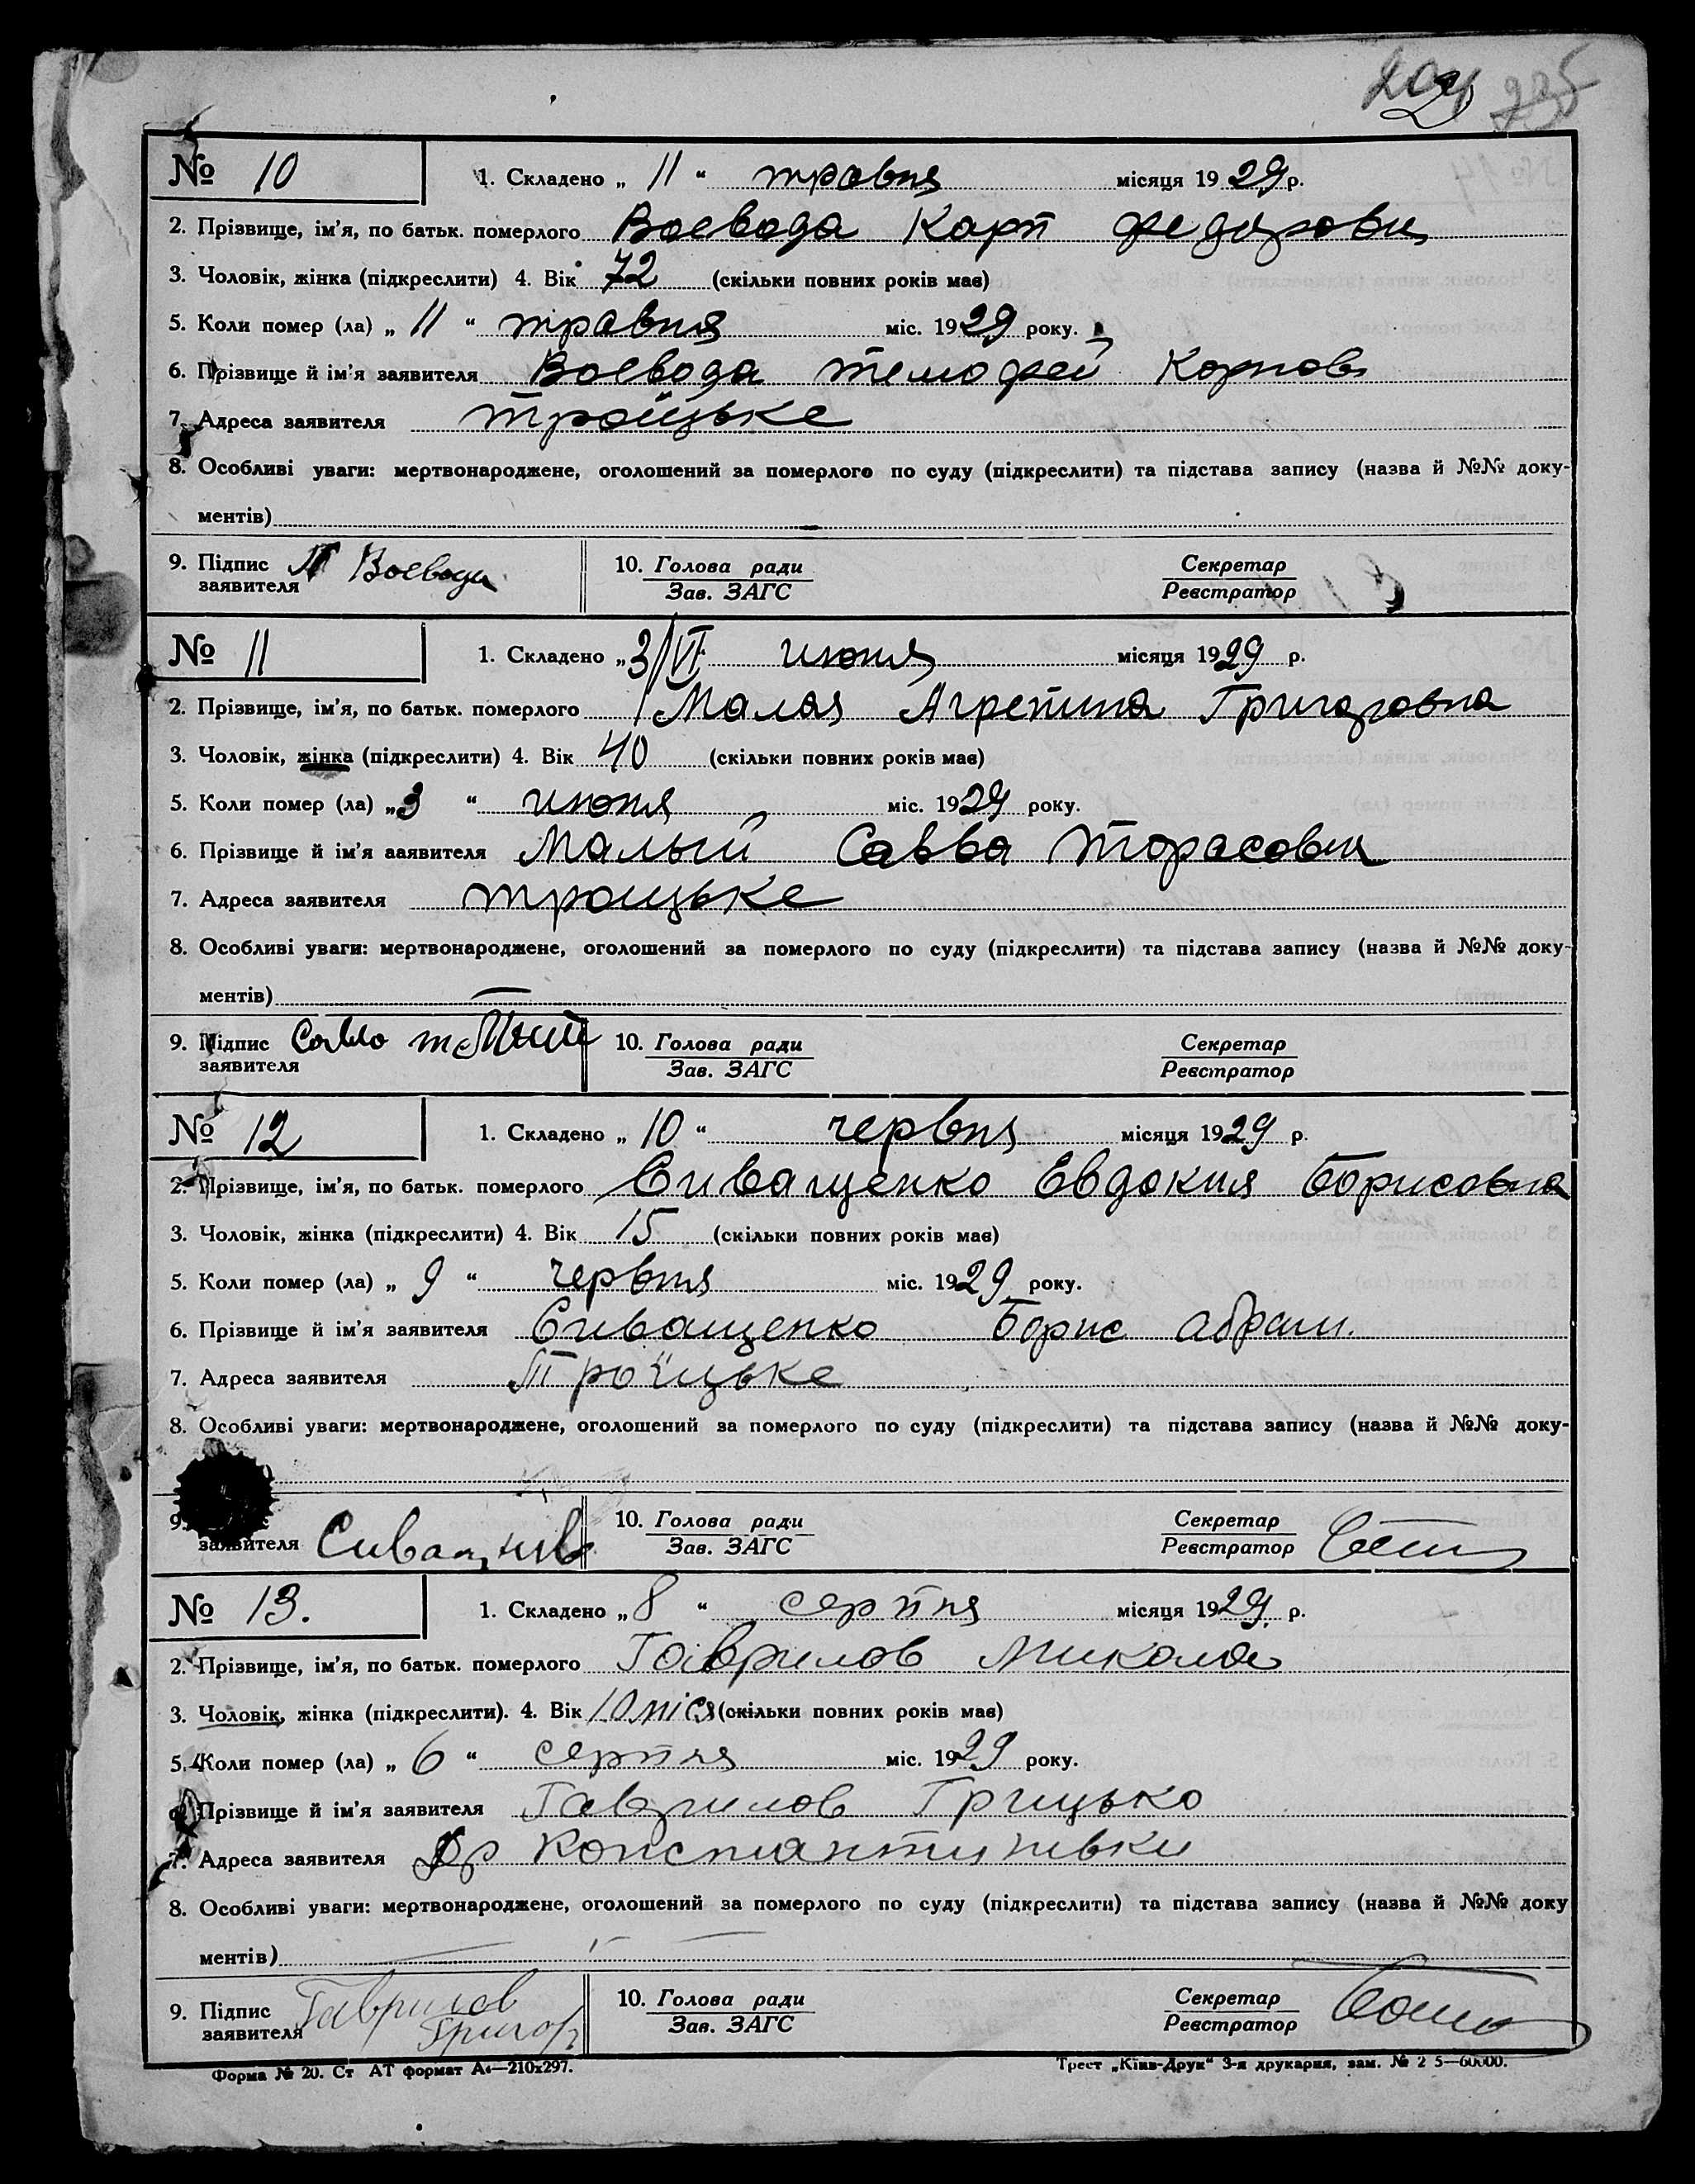 № 10 1. Складено „ 11 “ травня місяця 1929 р.
2. Прізвище, ім'я, по батьк. померлого Воевода Карп Федорович
3. Чоловік, жінка (підкреслити) 4. Вік 72 (скільки повних років має)
5. Коли помер (ла) „ 11 “ травня міс. 1929 року.
6. Прізвище й ім'я заявителя Воевода Темофей Корпов
7. Адреса заявителя Троїцьке
8. Особливі уваги: мертвонароджене, оголошений за померлого по суду (підкреслити) та підстава запису (назва й №№ доку-
ментів)
9. Підпис Воевода 10. Голова ради Секретар
заявителя Зав. ЗАГС Реєстратор
№ 11 1. Складено „ 3/VI июня місяця 1929 р.
2. Прізвище, ім'я, по батьк. померлого Малая Агрепина Григоровна
3. Чоловік, жінка (підкреслити) 4. Вік 40 (скільки повних років має)
5. Коли помер (ла) „ 3 “ июня міс. 1929 року.
6. Прізвище й ім'я аявителя Малый Савва Торасович
7. Адреса заявителя Троицьке
8. Особливі уваги: мертвонароджене, оголошений за померлого по суду (підкреслити) та підстава запису (назва й №№ доку-
ментів)
9. Підпис 10. Голова ради Секретар
заявителя Зав. ЗАГС Реєстратор
№ 12 1. Складено „ 10 “ червня місяця 1929 р.
2. Прізвище, ім'я, по батьк. померлого Сиващенко Евдокия Борисовна
3. Чоловік, жінка (підкреслити) 4. Вік 15 (скільки повних років має)
5. Коли помер (ла) „ 9 “ червня міс. 1929 року.
6. Прізвище й ім'я заявителя Сиващенко Борис Абрам.
7. Адреса заявителя Троїцьке
8. Особливі уваги: мертвонароджене, оголошений за померлого по суду (підкреслити) та підстава запису (назва й №№ доку-
9. 10. Голова ради Секретар
заявителя Зав. ЗАГС Реєстратор
№ 13. 1. Складено „ 8 “ серпня місяця 1929. р.
2. Прізвище, ім'я, по батьк. померлого Гаврилов Микола
3. Чоловік, жінка (підкреслити). 4. Вік 10 міся (скільки повних років має)
5. Коли помер (ла) „ 6 “ серпня міс. 1929 року.
Прізвище й ім'я заявителя Гаврилов Грицько
7. Адреса заявителя Константинівки
8. Особливі уваги: мертвонароджене, оголошений за померлого по суду (підкреслити) та підстава запису (назва й №№ доку
ментів)
9. Підпис Гаврилов 10. Голова ради Секретар
заявителя Григор Зав. ЗАГС Реєстратор
Форма № 20. Ст АТ формат А4—210х297. Трест „Київ-Друк“ 3-я друкарня, зам. № 2 5—60000.